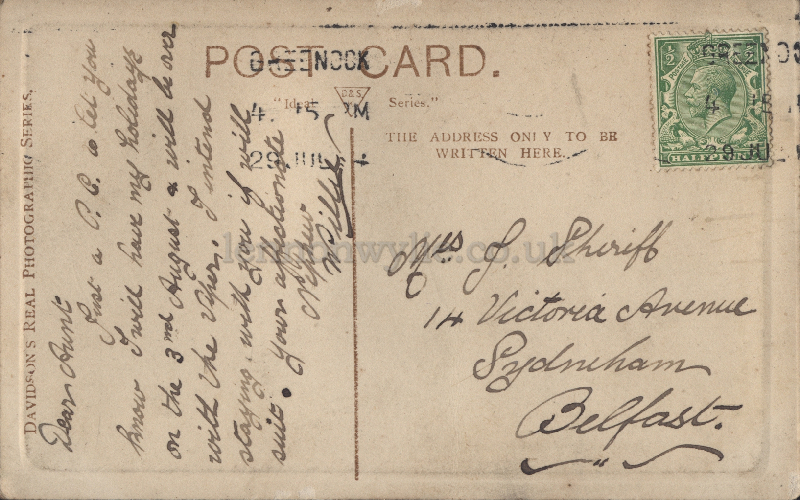 POST CARD.
"Ideal D&S Series."
THE ADDRESS ONLY TO BE
WRITTEN HERE.
DAVIDSON'S REAL PHOTOGRAPHIC SERIES.
GREENOCK
4. 15 M
29 JUL 4
GREENOC
4 15
29 JUL
HALFPENNY
Dear Aunt
Just a P.C. to let you
know I will have my holidays
on the 3rd August & will be over
with the Viper. I intend
staying with you if will
suit. Your affectionate
Nephew
Willie
Mrs J. Shiriff
14 Victoria Avenue
Sydneham
Belfast.
lennonwylie.co.uk